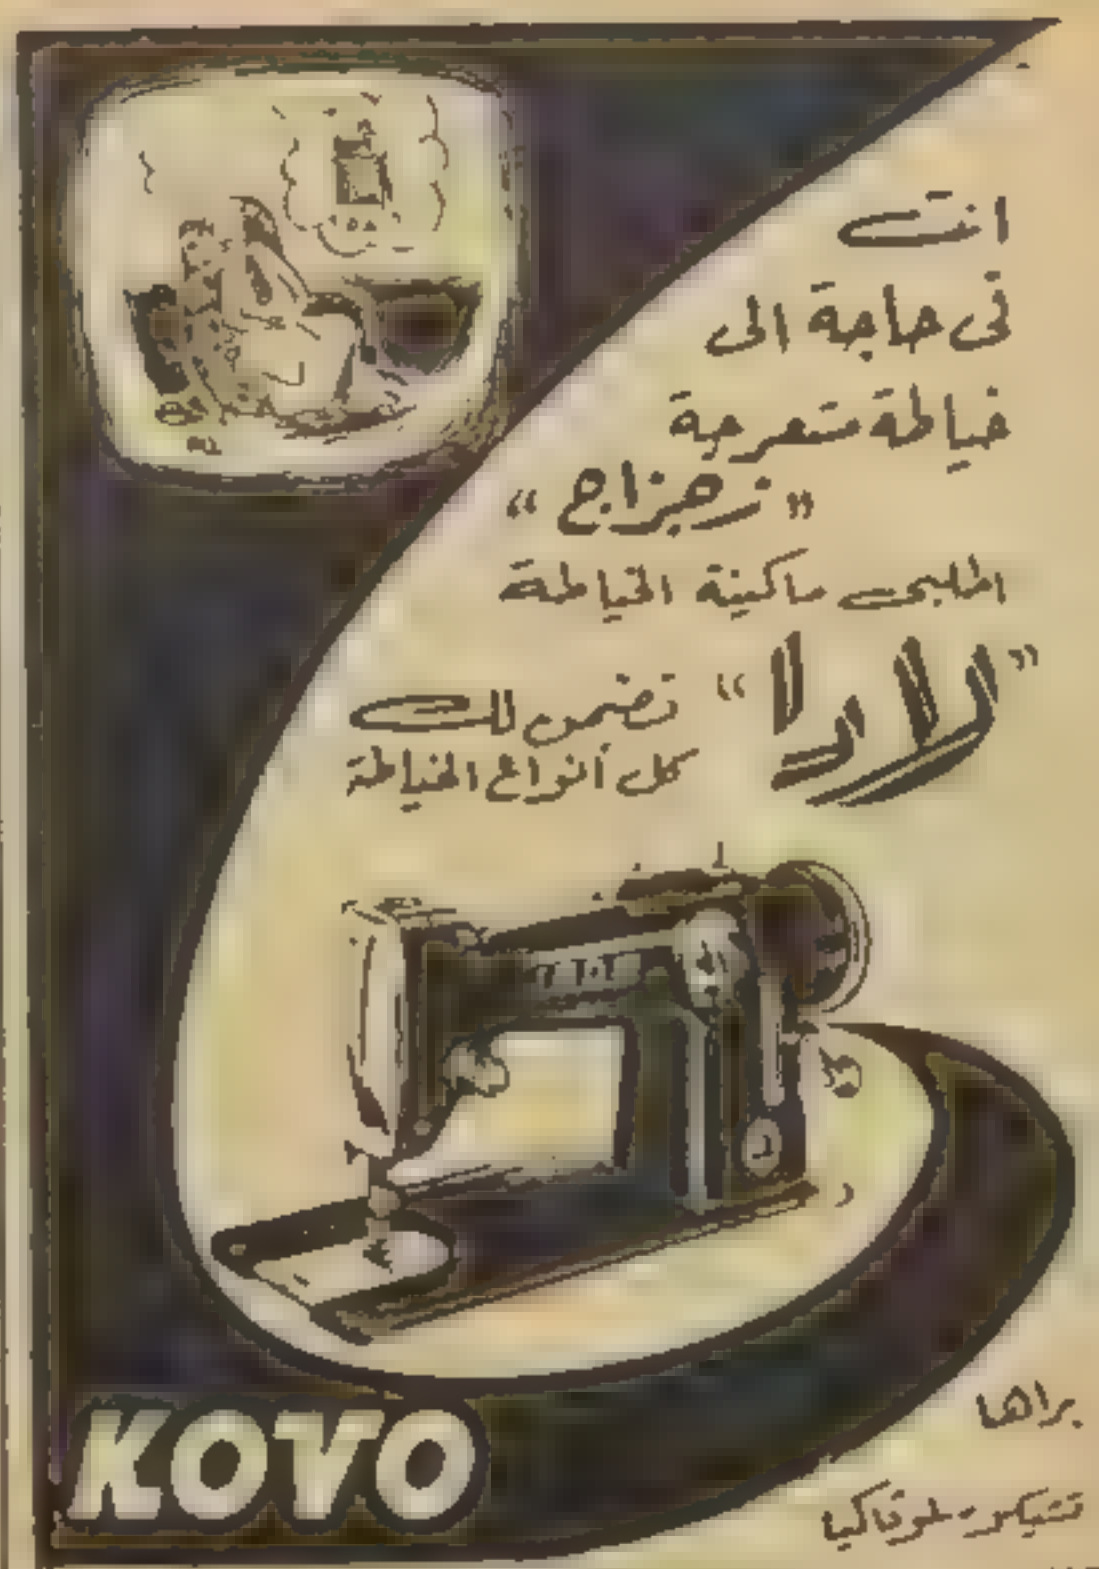 انت
فى حاجة الى
خياطة متعرجة
"زجزاج"
اطلبى ماكينة الخياطة
"لادا" تضمن لك
كل أنواع الخياطة
KOVO
براها
تشيكوسلوفاكيا